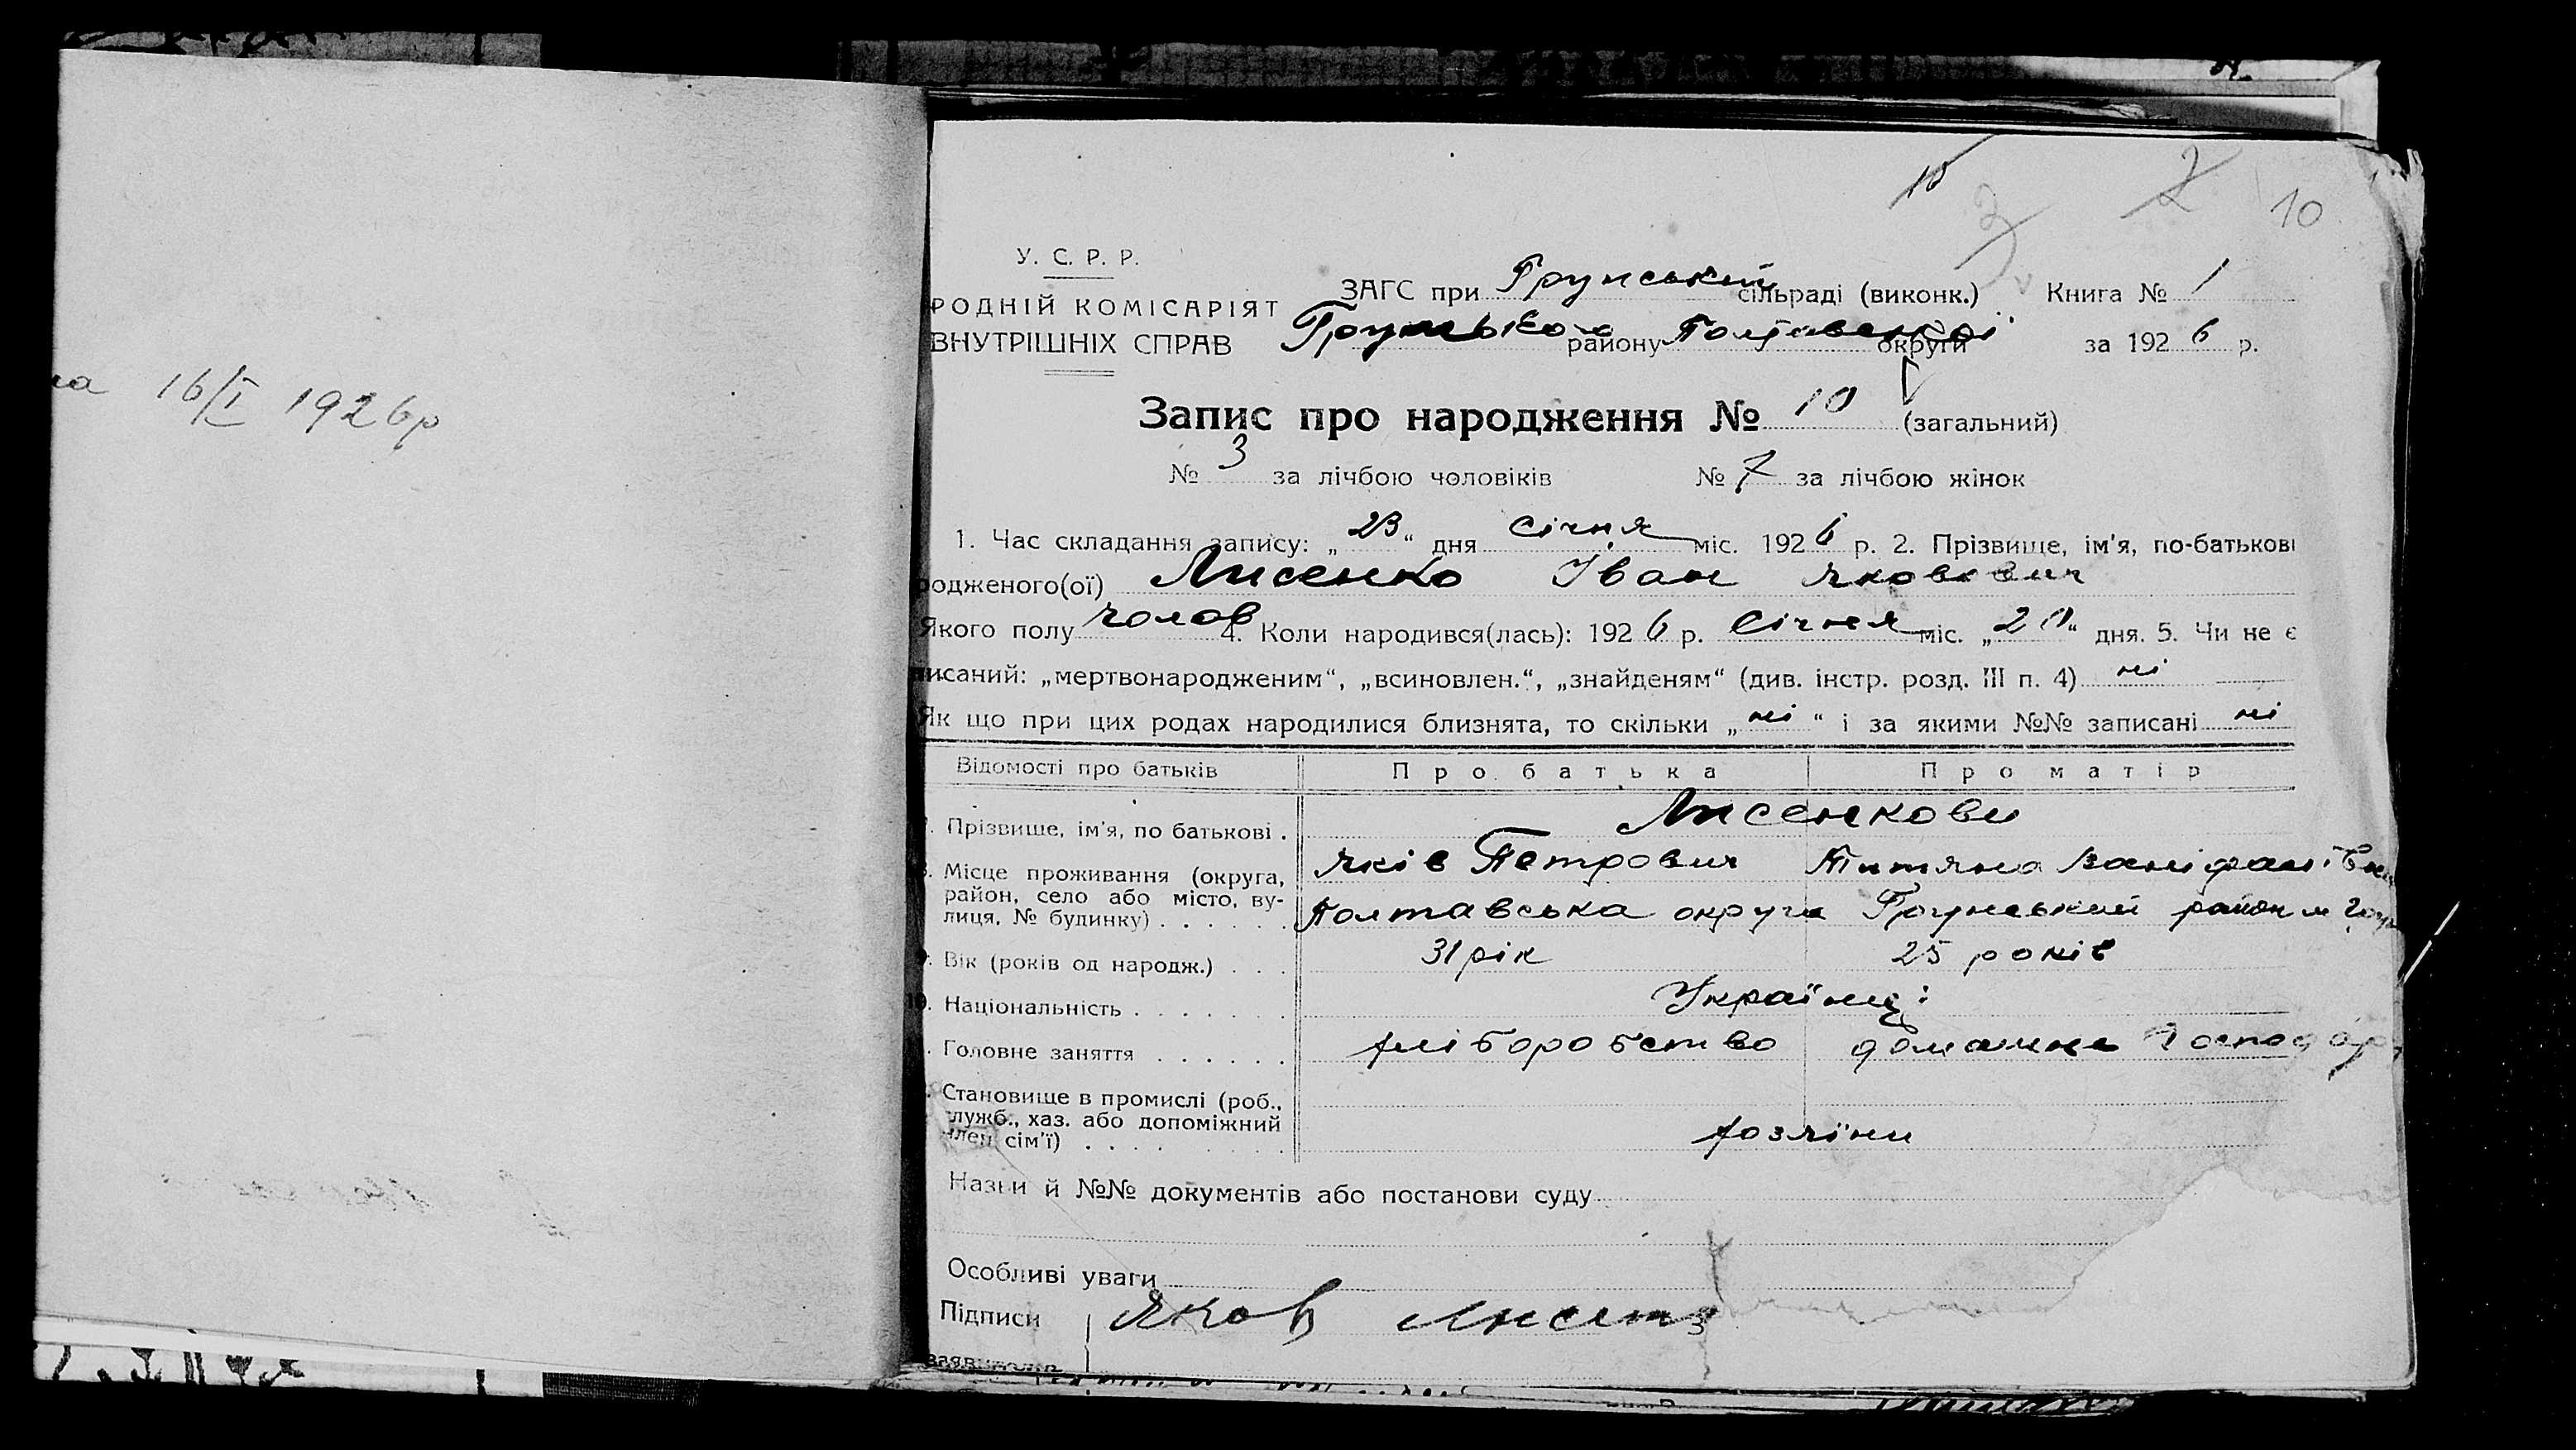 16/I 1926р
10
3
7
10
У. С. Р. Р.
РОДНІЙ КОМІСАРІЯТ
ВНУТРІШНІХ СПРАВ
ЗАГС при Грунській сільраді (виконк.) Книга № 1
Грунсько району Полтавської округи за 1926 р.
Запис про народження № 10 (загальний)
№ 3 за лічбою чоловіків № 7 за лічбою жінок
1. Час складання запису: „23“ дня Січня міс. 1926 р. 2. Прізвище, ім'я, по-батькові
родженого(ої) Лисенко Іван Якович
Якого полу чолов 4. Коли народився(лась): 1926 р. Січня міс. „20“ дня. 5. Чи не є
писаний: „мертвонародженим“, „всиновлен.“, „знайденям“ (див. інстр. розд. III п. 4) ні
Як що при цих родах народилися близнята, то скільки „ні“ і за якими №№ записані ні
Відомості про батьків Про батька Про матір
Прізвище, ім'я, по батькові . Лисенкови
Яків Петрович Титяна
Місце проживання (округа, район, село або місто, ву-
лиця, № будинку) . . . . . . Полтавська округа Грунський район м
Вік (років од народж.) . . . 31 рік 25 років
10. Національність . . . . . . . Українці
Головне заняття . . . . . . хліборобство домашнє господар
Становище в промислі (роб.,
служб., хаз. або допоміжний
член сім'ї) . . . . . . . . хозяїни
Назви й №№ документів або постанови суду
Особливі уваги
Підписи Яков
заявителів